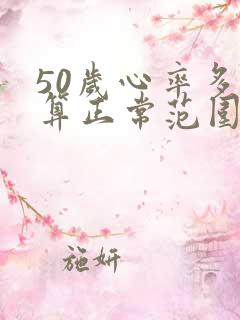 50歲心率多
算正常范围
施妍